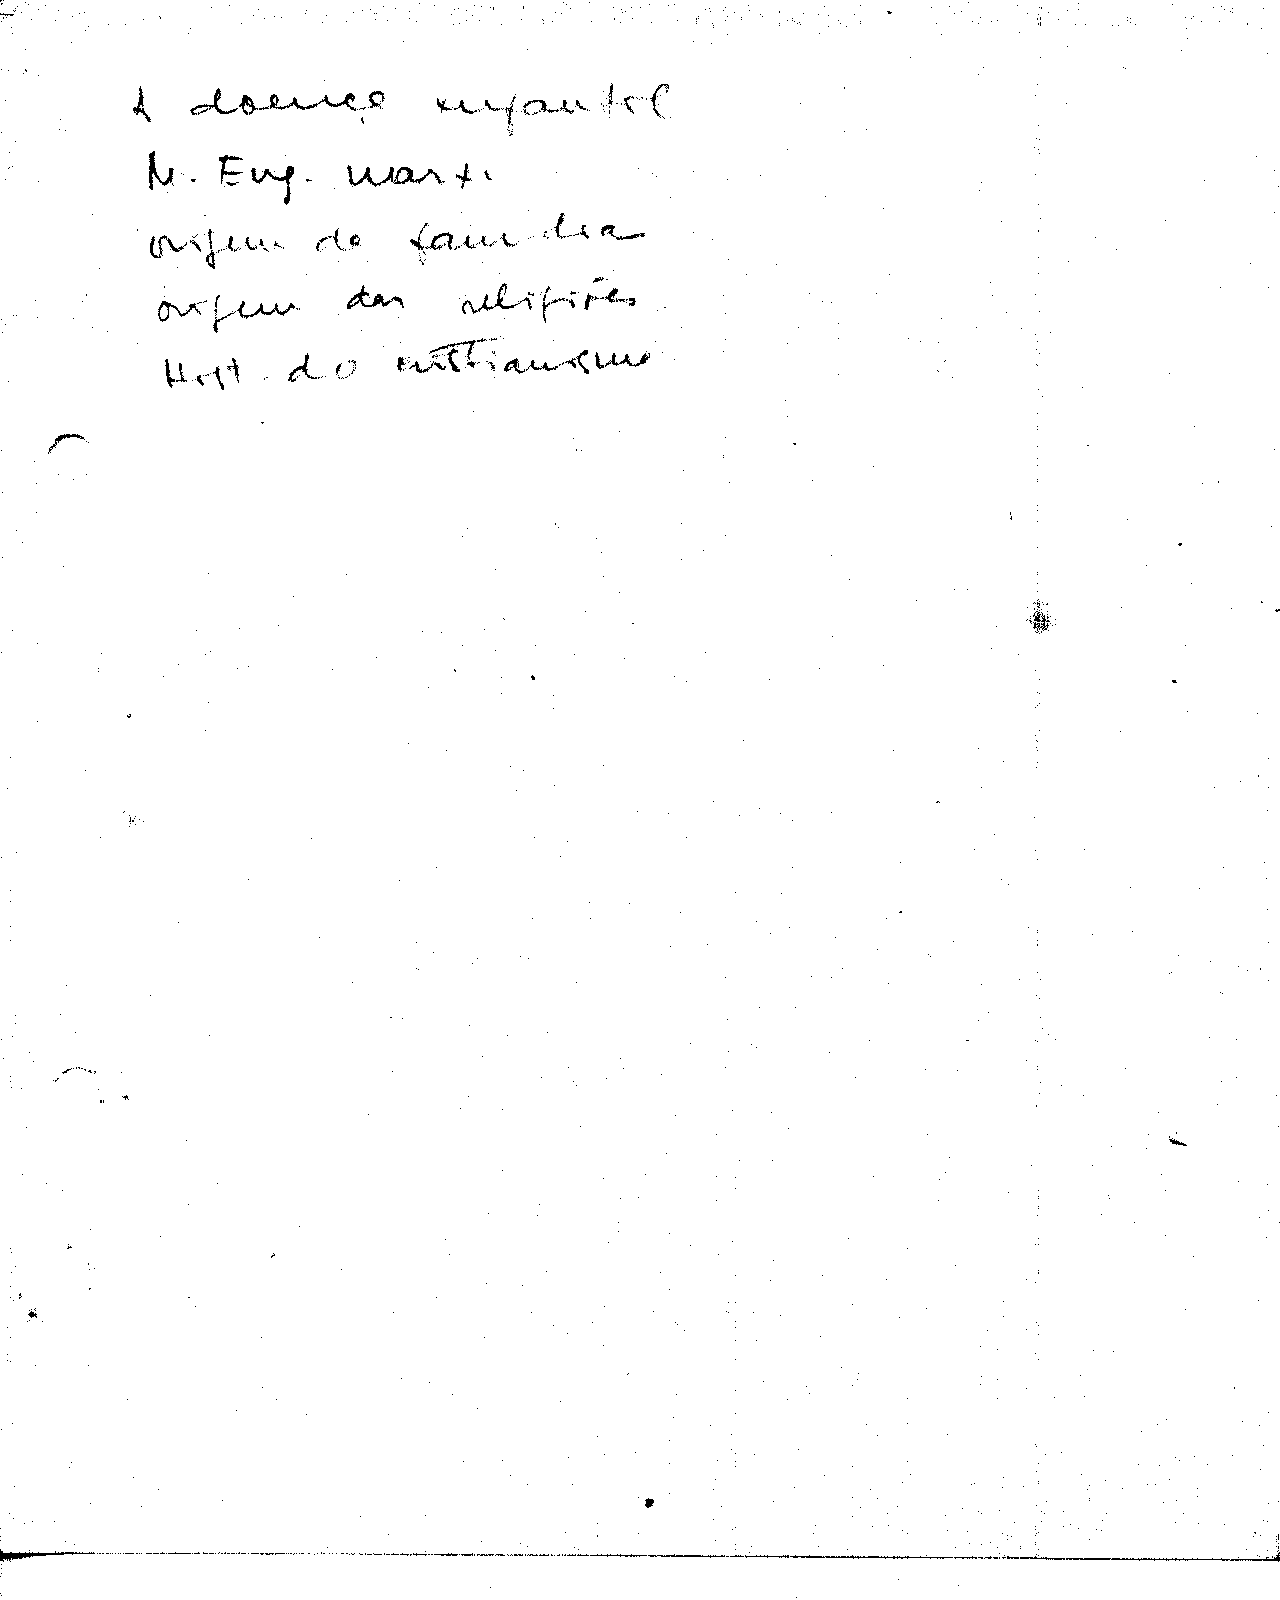 A doença infantil
M. Eng. Marx.
origem da familia
origem das religiões
Hist. do cristianismo